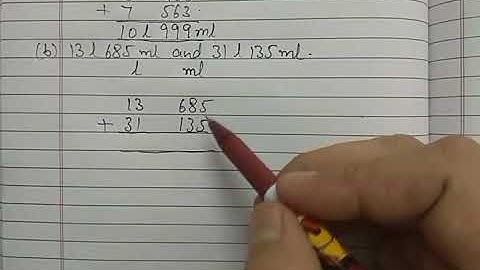 + 7 563
10 l 999 ml
(b) 13 l 685 ml and 31 l 135 ml.
l ml
13 685
+ 31 135